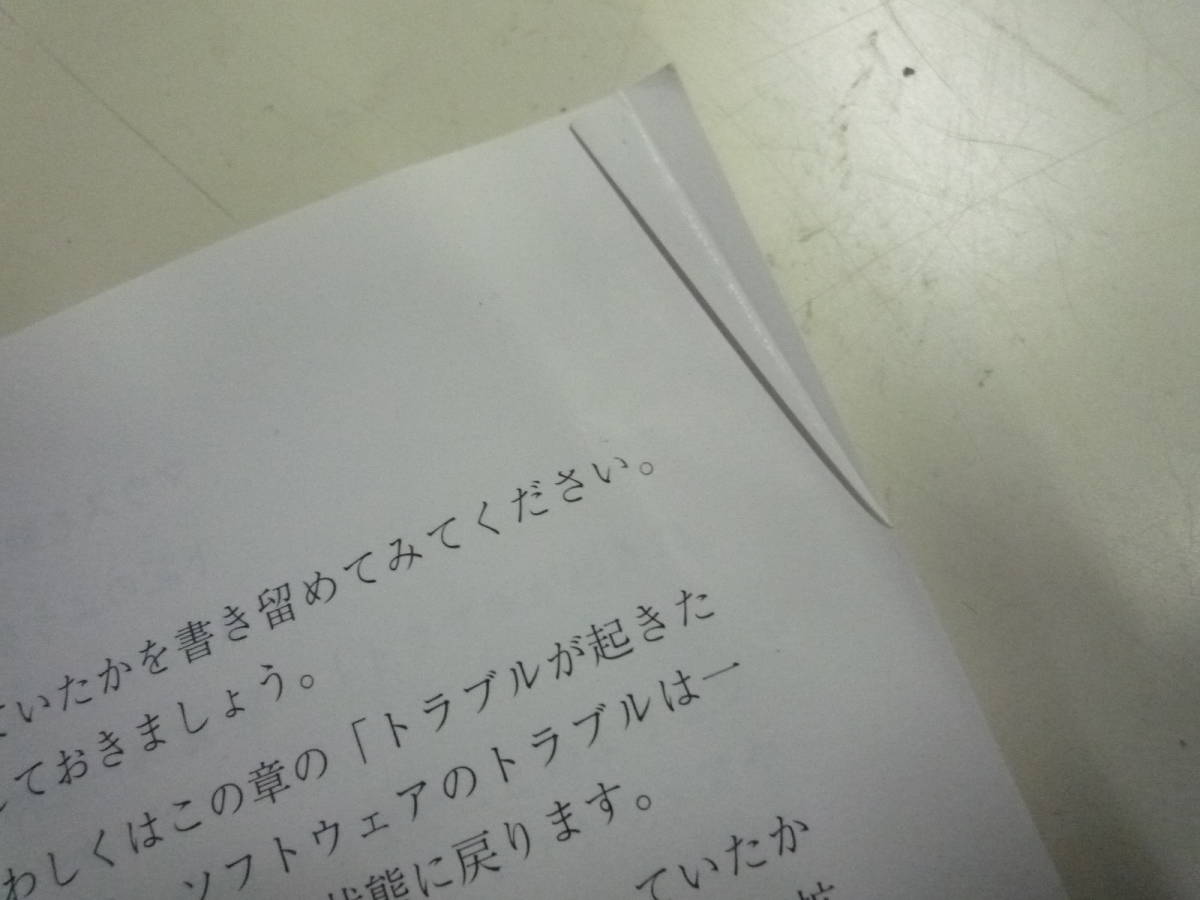 ていたかを書き留めてみてください。
ておきましょう。
わしくはこの章の「トラブルが起きた
ソフトウェアのトラブルは一
状態に戻ります。
ていたか